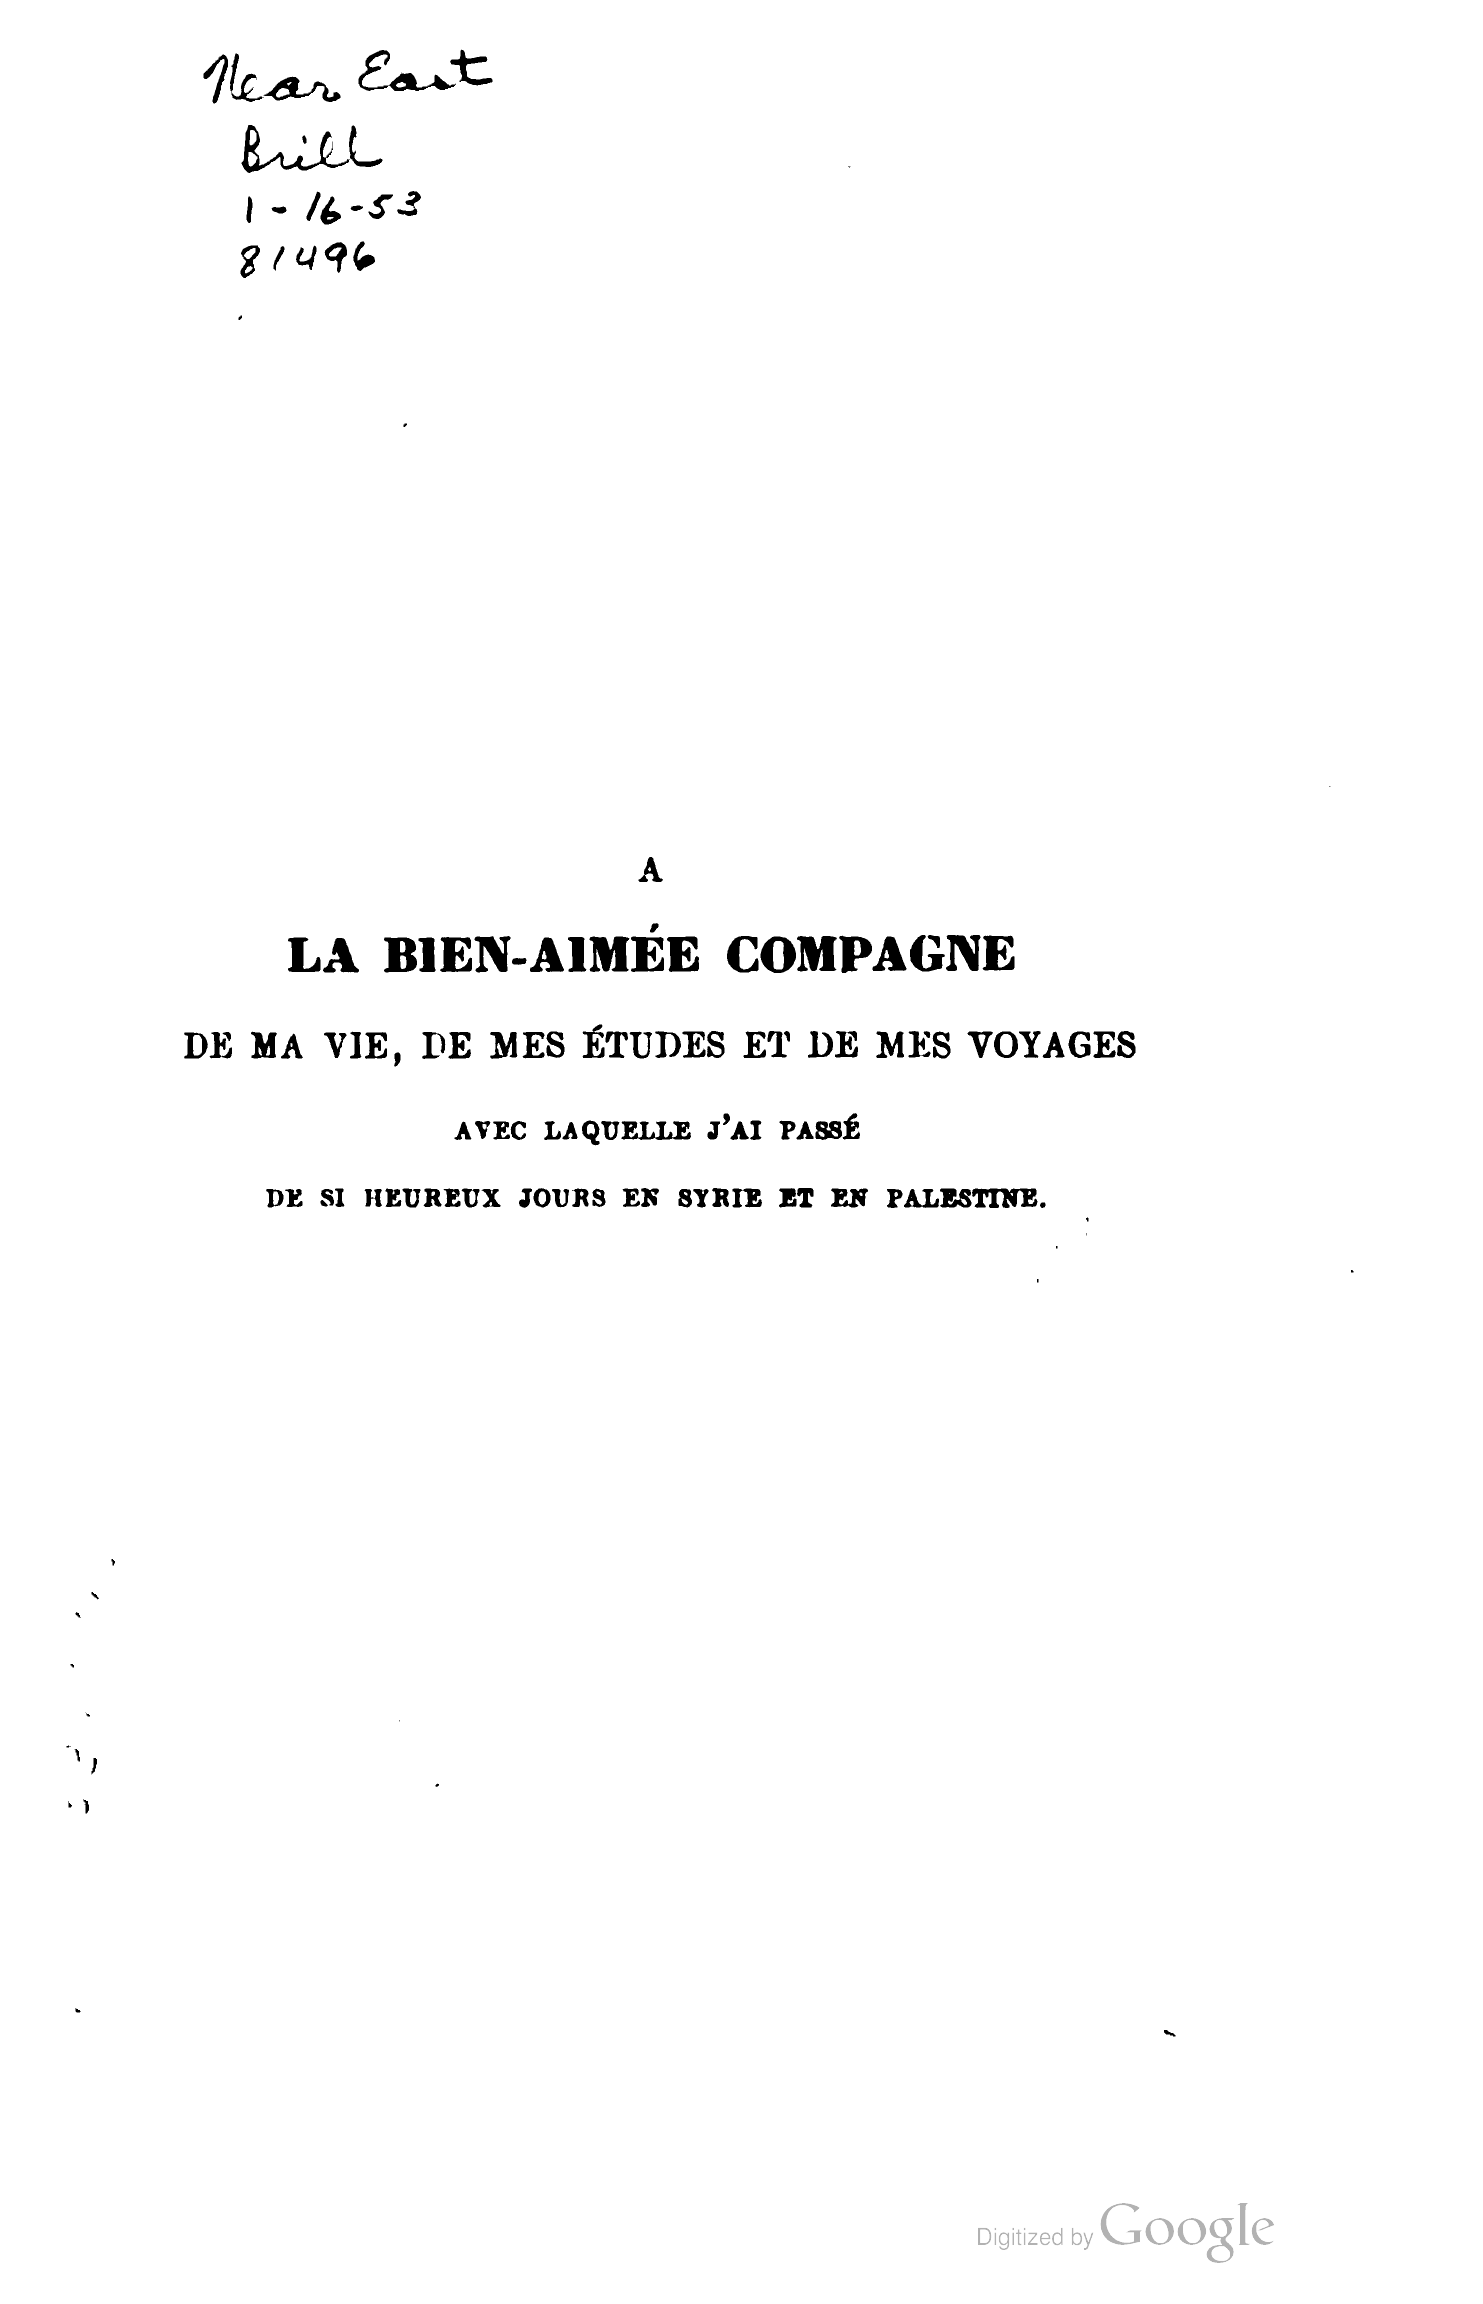 Near East
Brill
1-16-53
81496
A
LA BIEN-AIMÉE COMPAGNE
DE MA VIE, DE MES ÉTUDES ET DE MES VOYAGES
AVEC LAQUELLE J'AI PASSÉ
DE SI HEUREUX JOURS EN SYRIE ET EN PALESTINE.
Digitized by Google